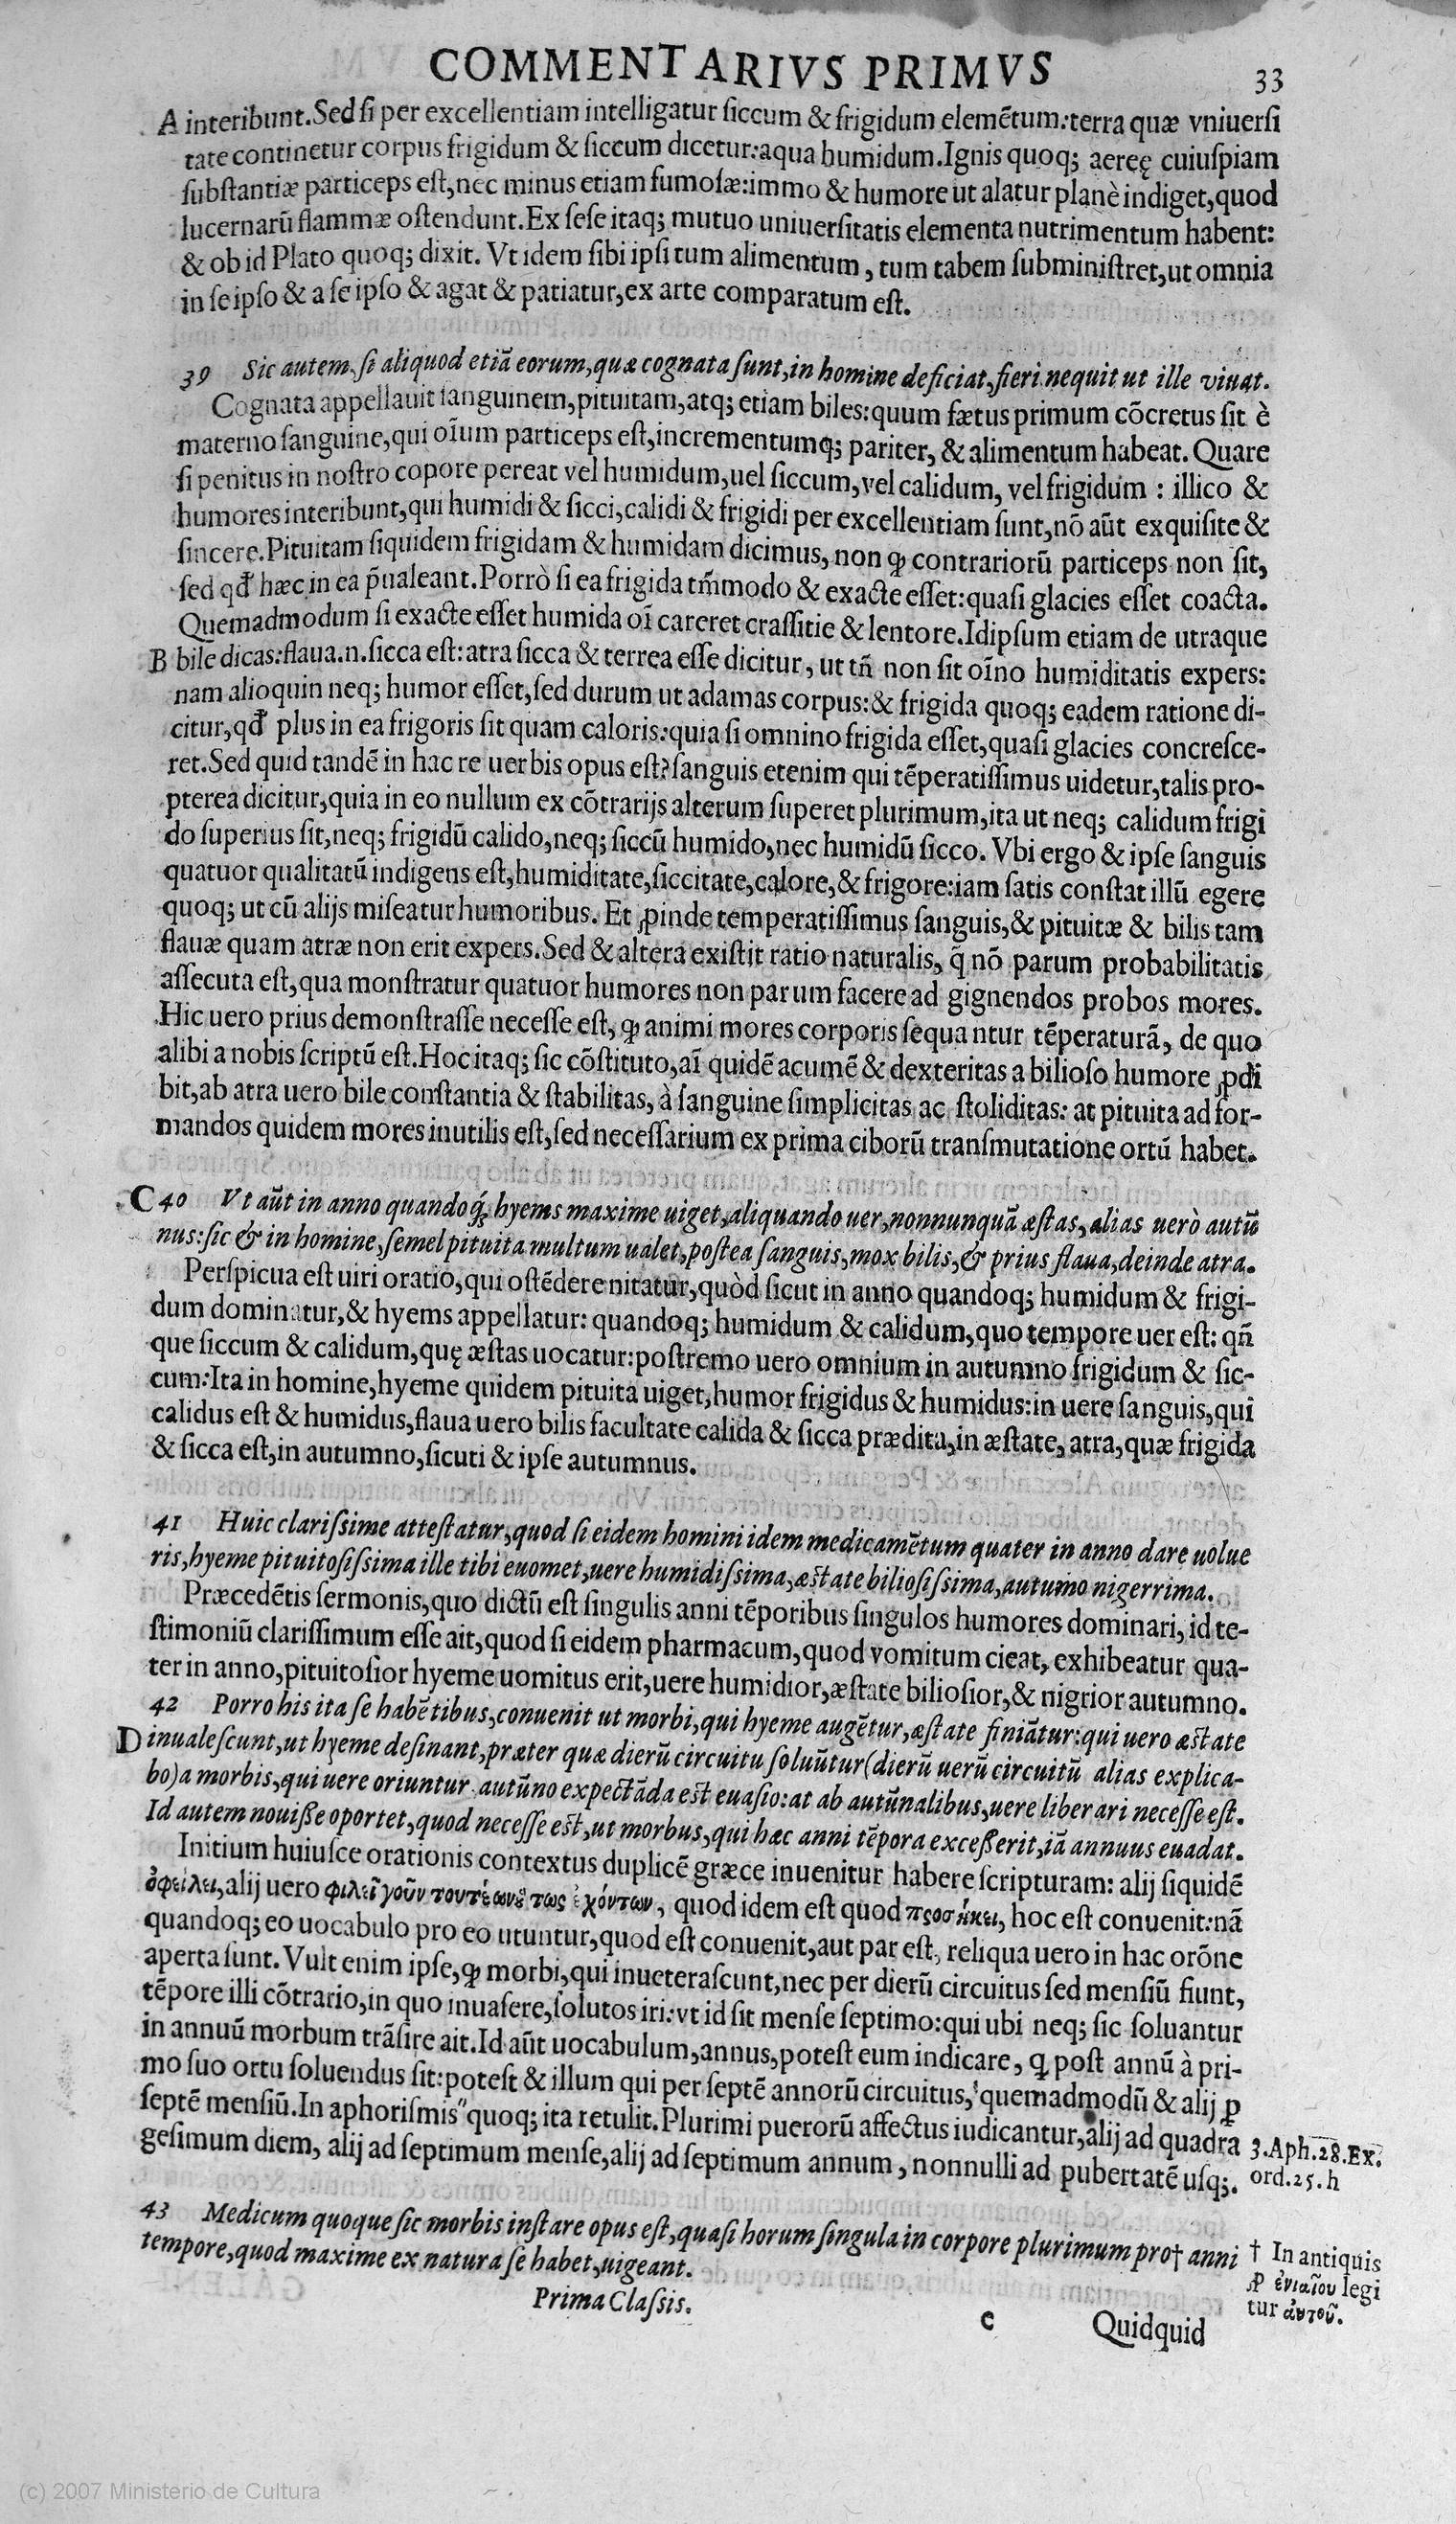 COMMENTARIVS PRIMVS
33
A interibunt.Sed si per excellentiam intelligatur siccum & frigidum elemētum:terra quæ vniuersi
tate continetur corpus frigidum & siccum dicetur:aqua humidum.Ignis quoq; aereę cuiuspiam
substantiæ particeps est,nec minus etiam fumosæ:immo & humore ut alatur planè indiget,quod
lucernarū flammæ ostendunt.Ex sese itaq; mutuo uniuersitatis elementa nutrimentum habent:
& ob id Plato quoq; dixit. Vt idem sibi ipsi tum alimentum, tum tabem subministret,ut omnia
in se ipso & a se ipso & agat & patiatur,ex arte comparatum est.
39 Sic autem, si aliquod etiā eorum,quæ cognata sunt,in homine deficiat,fieri nequit ut ille viuat.
Cognata appellauit sanguinem,pituitam,atq; etiam biles:quum fætus primum cōcretus sit è
materno sanguine,qui oīum particeps est,incrementumq; pariter, & alimentum habeat. Quare
si penitus in nostro copore pereat vel humidum,uel siccum,vel calidum, vel frigidum : illico &
humores interibunt,qui humidi & sicci,calidi & frigidi per excellentiam sunt,nō aūt exquisite &
sincere.Pituitam siquidem frigidam & humidam dicimus, non ꝙ contrariorū particeps non sit,
sed qđ hæc in ea p̄ualeant.Porrò si ea frigida tm̄modo & exacte esset:quasi glacies esset coacta.
Quemadmodum si exacte esset humida oī careret crassitie & lentore.Idipsum etiam de utraque
B bile dicas:flaua.n.sicca est:atra sicca & terrea esse dicitur, ut tn̄ non sit oīno humiditatis expers:
nam alioquin neq; humor esset,sed durum ut adamas corpus:& frigida quoq; eadem ratione di-
citur,qđ plus in ea frigoris sit quam caloris:quia si omnino frigida esset,quasi glacies concresce-
ret.Sed quid tandē in hac re uerbis opus est?sanguis etenim qui tēperatissimus uidetur,talis pro-
pterea dicitur,quia in eo nullum ex cōtrarijs alterum superet plurimum,ita ut neq; calidum frigi
do superius sit,neq; frigidū calido,neq; siccū humido,nec humidū sicco. Vbi ergo & ipse sanguis
quatuor qualitatū indigens est,humiditate,siccitate,calore,& frigore:iam satis constat illū egere
quoq; ut cū alijs miseatur humoribus. Et ꝓinde temperatissimus sanguis,& pituitæ & bilis tam
flauæ quam atræ non erit expers.Sed & altera existit ratio naturalis, q̄ nō parum probabilitatis
assecuta est,qua monstratur quatuor humores non parum facere ad gignendos probos mores.
Hic uero prius demonstrasse necesse est, ꝙ animi mores corporis sequa ntur tēperaturā, de quo
alibi a nobis scriptū est.Hoc itaq; sic cōstituto,aī quidē acumē & dexteritas a bilioso humore ꝓdi
bit,ab atra uero bile constantia & stabilitas, à sanguine simplicitas ac stoliditas: at pituita ad for-
mandos quidem mores inutilis est,sed necessarium ex prima ciborū transmutatione ortū habet.
C 40 Vt aūt in anno quandoq; hyems maxime uiget,aliquando uer,nonnunquā æstas, alias uerò autū
nus:sic & in homine,semel pituita multum ualet,postea sanguis,mox bilis,& prius flaua,deinde atra.
Perspicua est uiri oratio,qui ostēdere nitatur,quòd sicut in anno quandoq; humidum & frigi-
dum dominatur,& hyems appellatur: quandoq; humidum & calidum,quo tempore uer est: qn̄
que siccum & calidum,quę æstas uocatur:postremo uero omnium in autumno frigidum & sic-
cum:Ita in homine,hyeme quidem pituita uiget,humor frigidus & humidus:in uere sanguis,qui
calidus est & humidus,flaua uero bilis facultate calida & sicca prædita,in æstate, atra,quæ frigida
& sicca est,in autumno,sicuti & ipse autumnus.
41 Huic clarissime attestatur,quod si eidem homini idem medicamētum quater in anno dare uolue
ris,hyeme pituitosissima ille tibi euomet,uere humidissima,æstate biliosissima,autumno nigerrima.
Præcedētis sermonis,quo dictū est singulis anni tēporibus singulos humores dominari, id te-
stimoniū clarissimum esse ait,quod si eidem pharmacum,quod vomitum cieat, exhibeatur qua-
ter in anno,pituitosior hyeme uomitus erit,uere humidior,æstate biliosior,& nigrior autumno.
42 Porro his ita se habētibus,conuenit ut morbi,qui hyeme augētur,æstate finiātur:qui uero æstate
D inualescunt,ut hyeme desinant,præter quæ dierū circuitu soluūtur(dierū uerū circuitū alias explica-
bo)a morbis,qui uere oriuntur autūno expectāda est euasio:at ab autūnalibus,uere liberari necesse est.
Id autem nouisse oportet,quod necesse est,ut morbus,qui hæc anni tēpora excesserit,iā annuus euadat.
Initium huiusce orationis contextus duplicē græce inuenitur habere scripturam: alij siquidē
ὀφείλει,alij uero φιλεῖ γοῦν τουτέων οὕτως ἐχόντων, quod idem est quod προσήκει, hoc est conuenit:nā
quandoq; eo uocabulo pro eo utuntur,quod est conuenit,aut par est, reliqua uero in hac orōne
aperta sunt. Vult enim ipse,ꝙ morbi,qui inueterascunt,nec per dierū circuitus sed mensiū fiunt,
tēpore illi cōtrario,in quo inuasere,solutos iri:vt id sit mense septimo:qui ubi neq; sic soluantur
in annuū morbum trāsire ait.Id aūt uocabulum,annus,potest eum indicare, ꝙ post annū à pri-
mo suo ortu soluendus sit:potest & illum qui per septē annorū circuitus, quemadmodū & alij ꝑ
septē mensiū.In aphorismis"quoq; ita retulit.Plurimi puerorū affectus iudicantur,alij ad quadra
gesimum diem, alij ad septimum mense,alij ad septimum annum, nonnulli ad pubertatē usq;.
3.Aph.28.Ex.
ord.25.h
43 Medicum quoque sic morbis instare opus est,quasi horum singula in corpore plurimum pro† anni
tempore,quod maxime ex natura se habet,uigeant.
† In antiquis
ꝓ ἐνιαῖου legi
tur αὐτοῦ.
Prima Classis.
c
Quidquid
(c) 2007 Ministerio de Cultura